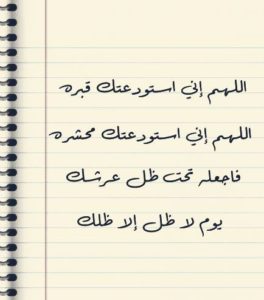 اللهم إني استودعتك قبره
اللهم إني استودعتك محشره
فاجعله تحت ظل عرشك
يوم لا ظل إلا ظلك